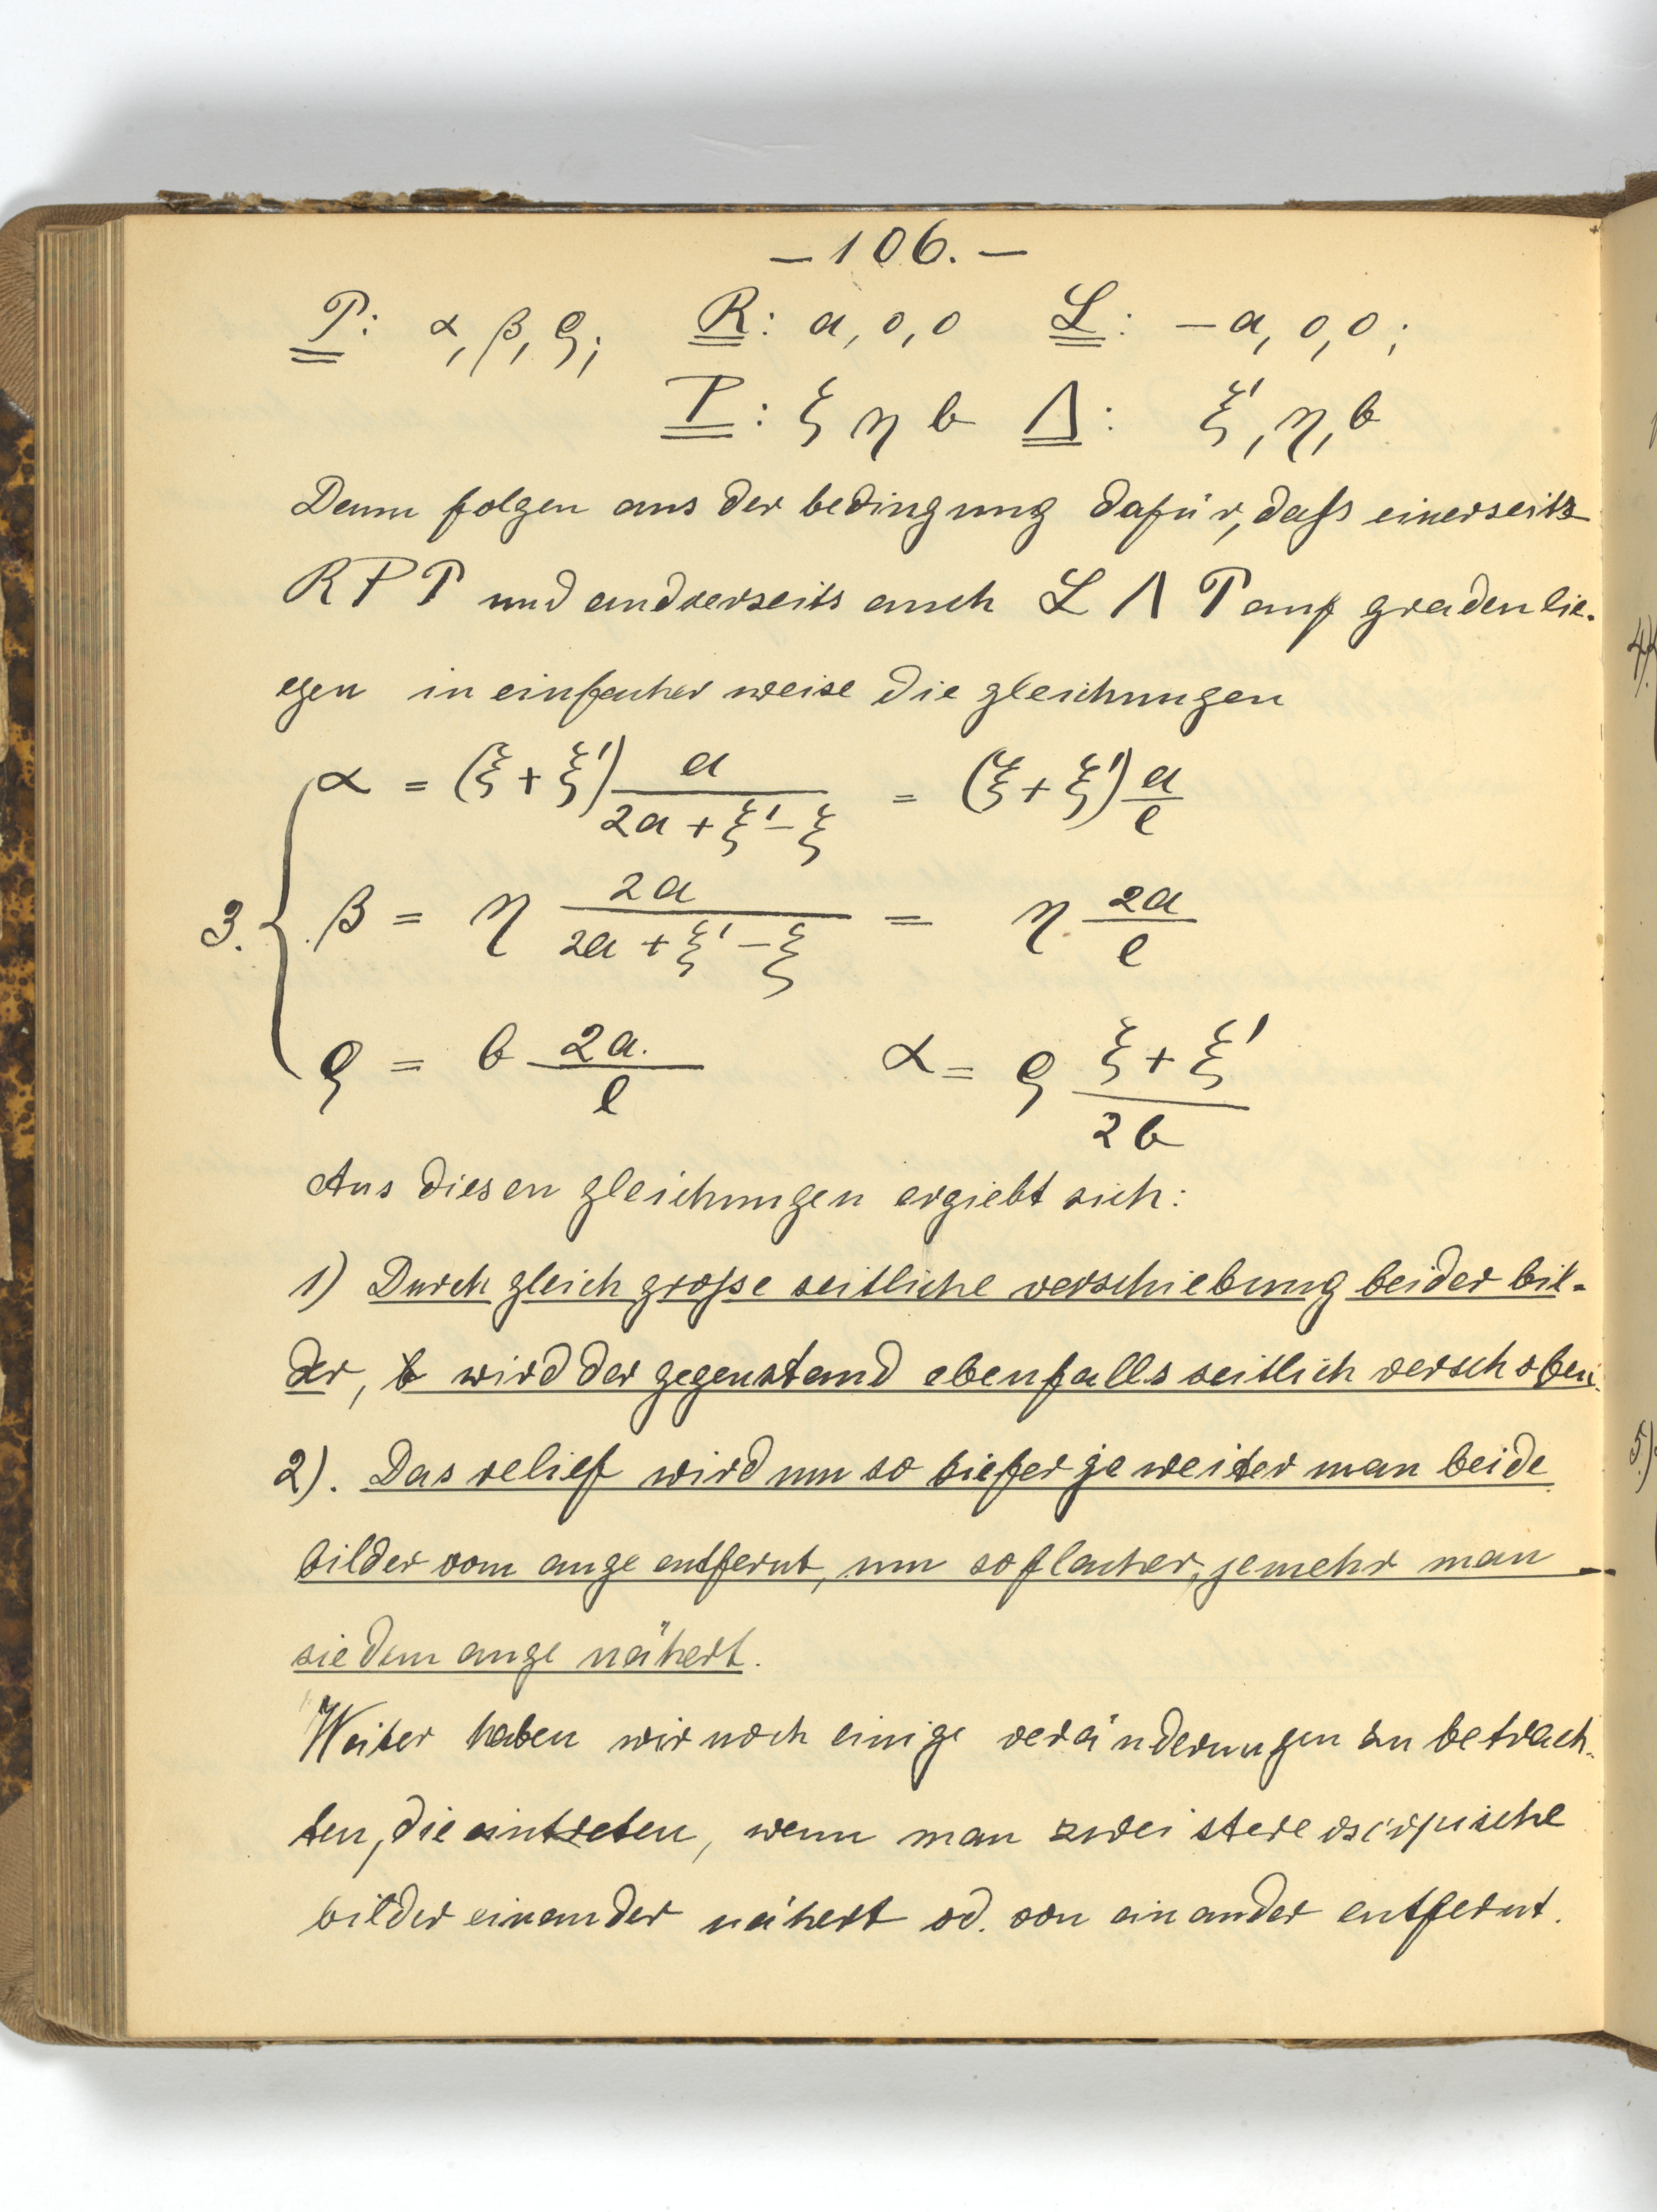 — 106. —
P: α, β, ϱ; R: a, o, o L: – a, o, o;
Ρ: ξ η b Λ: ξ', η, b
Denn folgen aus der bedingung dafür, daſs einerseits
R Ρ P und andrerseits auch L Λ P auf graden lie-
gen in einfacher weise die gleichungen
α = (ξ + ξ') a / (2a + ξ' – ξ) = (ξ + ξ') a / l
3. { β = η 2a / (2a + ξ' – ξ) = η. 2a / l
ϱ = b 2a. / l α = ϱ (ξ + ξ') / 2b
Aus diesen gleichungen ergiebt sich:
1) Durch gleich groſse seitliche verschiebung beider bil-
der, wird der gegenstand ebenfalls seitlich verschoben.
2). Das relief wird um so tiefer je weiter man beide
bilder vom auge entfernt, um so flacher, jemehr man
sie dem auge nähert.
Weiter haben wir noch einige veränderungen zu betrach-
ten, die eintreten, wenn man zwei stereoscopische
bilder einander nähert od. von einander entfernt.
4)
5.)